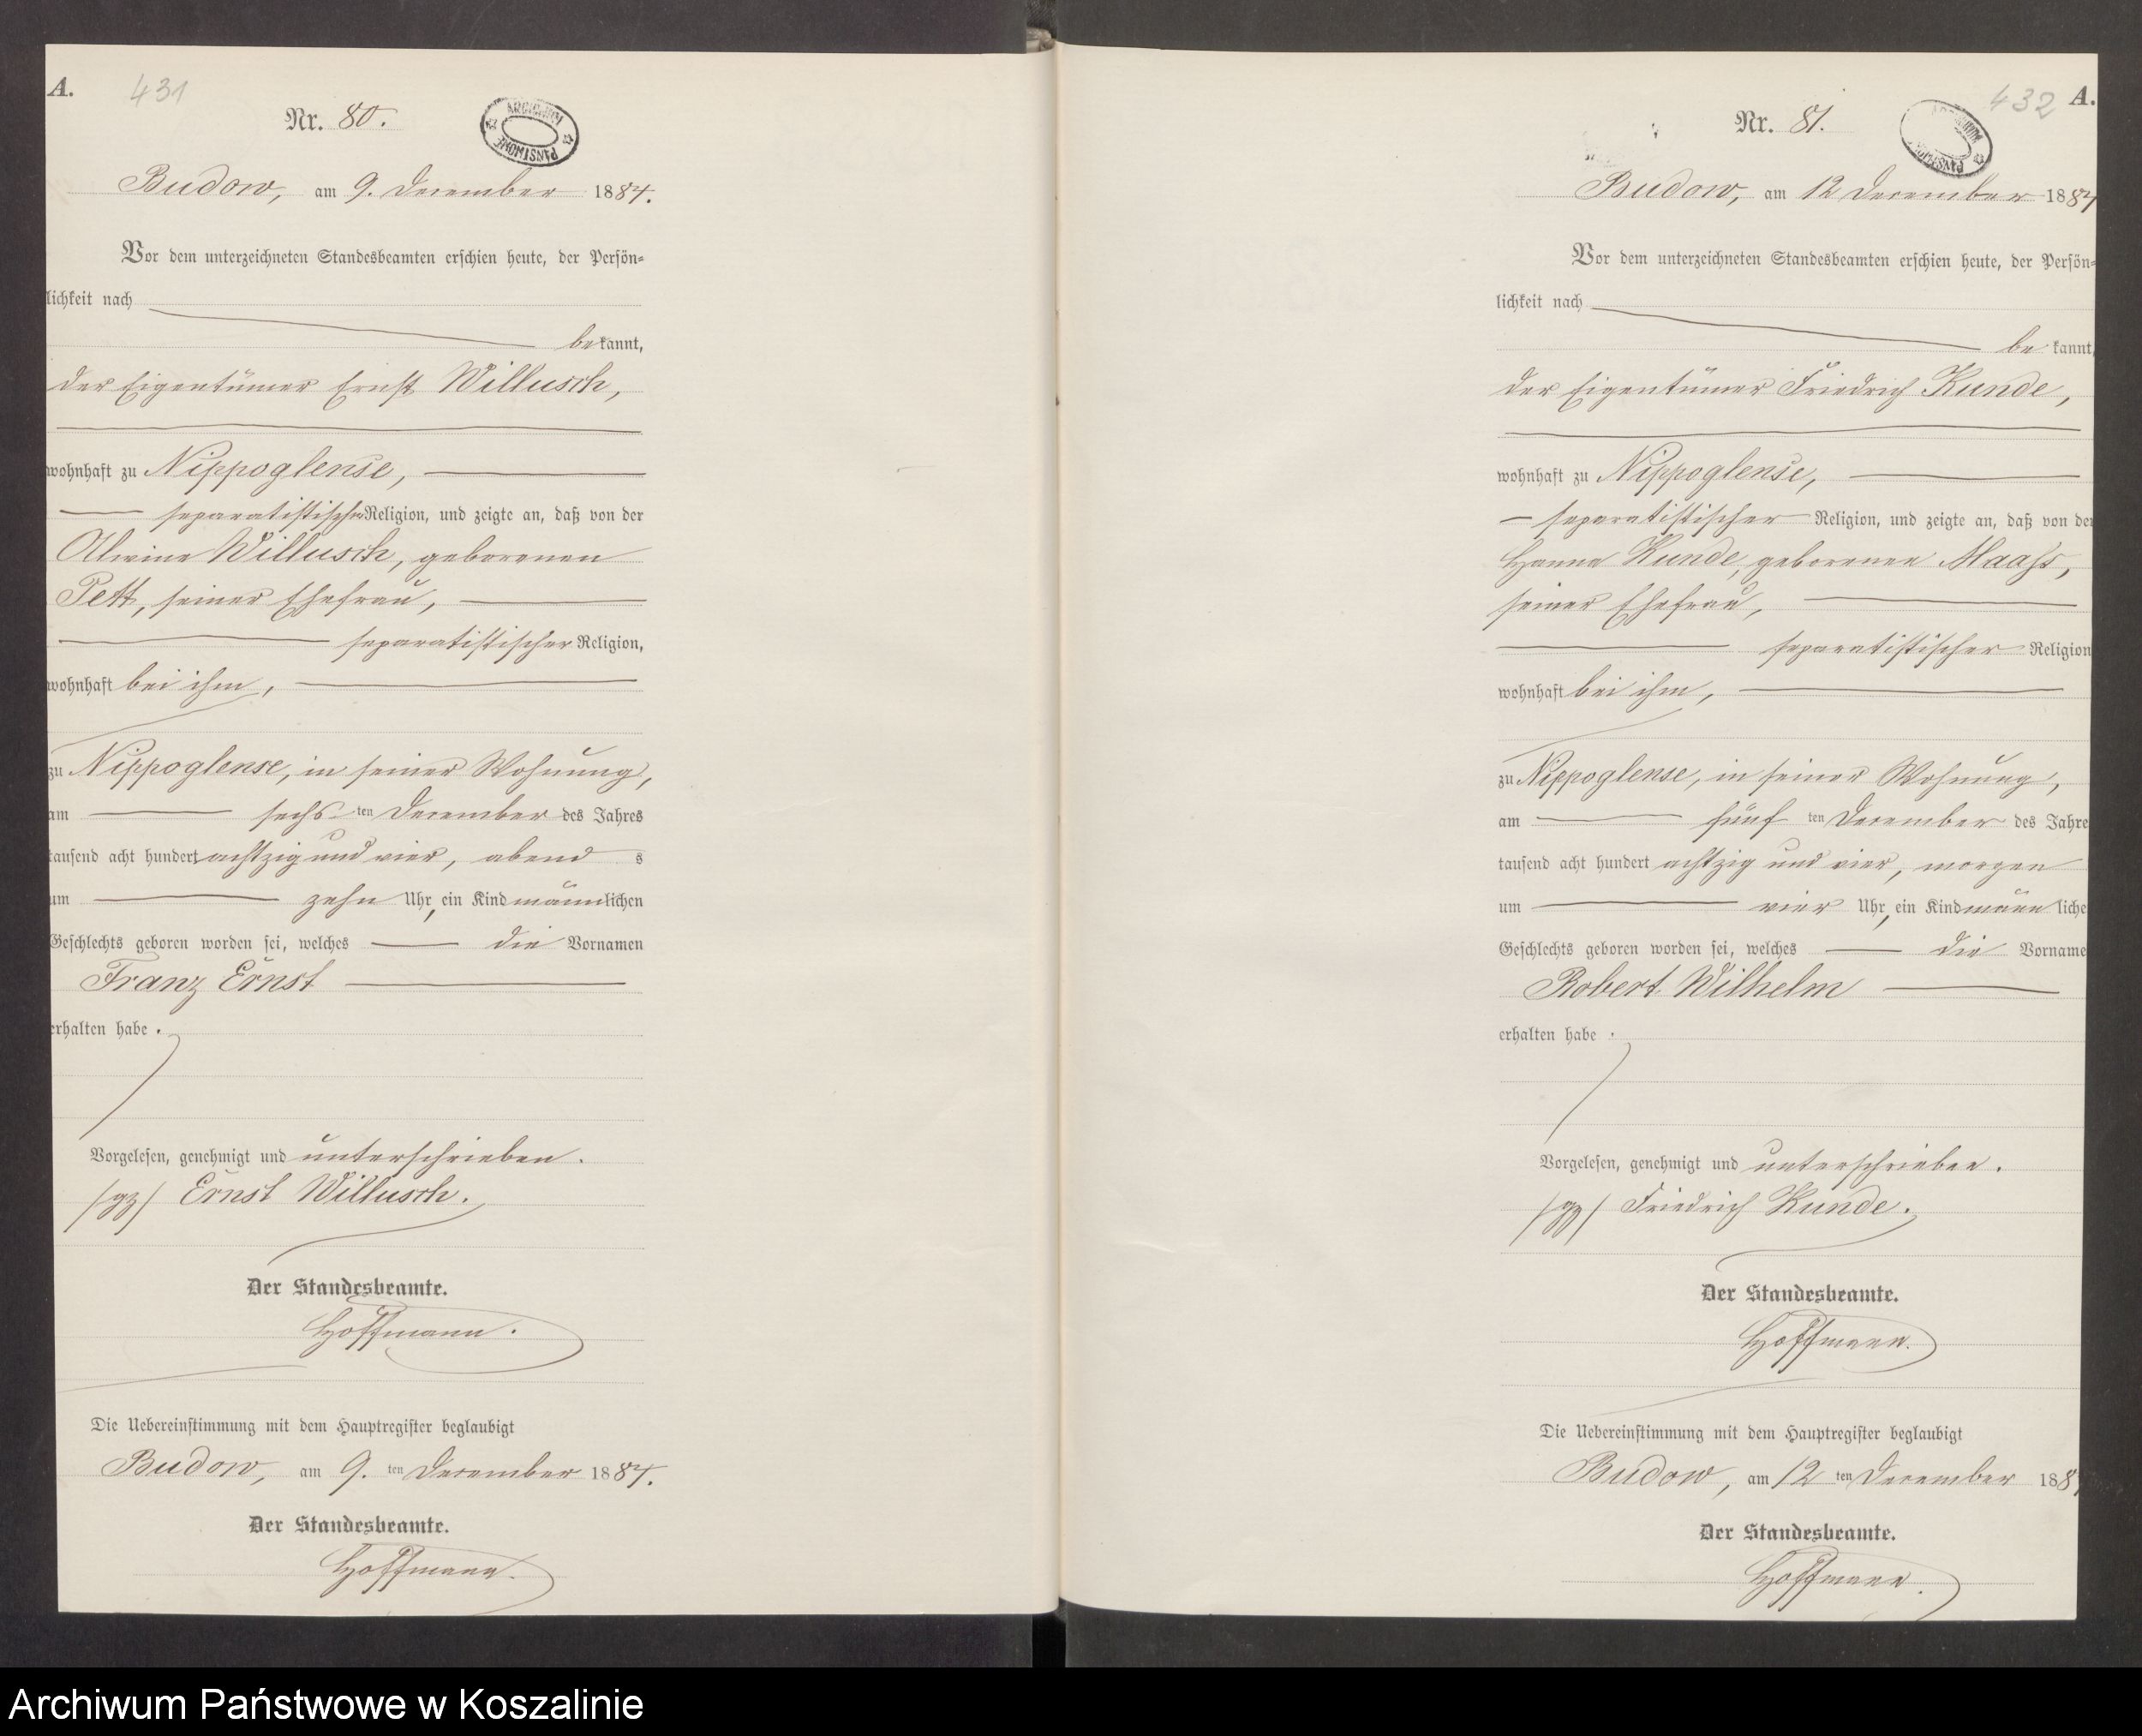 A.
431
Nr. 80.
ARCHIWUM PAŃSTWOWE
Budow, am 9. December 1884.
Vor dem unterzeichneten Standesbeamten erschien heute, der Persön=
lichkeit nach
bekannt,
der Eigentümer Ernst Willusch,
wohnhaft zu Nippoglense,
separatistischer Religion, und zeigte an, daß von der
Alwine Willusch, geborenen
Pett, seiner Ehefrau,
separatistischer Religion,
wohnhaft bei ihm,
zu Nippoglense, in seiner Wohnung,
am sechsten December des Jahres
tausend acht hundert achtzig und vier, abends
um zehn Uhr, ein Kind männlichen
Geschlechts geboren worden sei, welches die Vornamen
Franz Ernst
erhalten habe.
Vorgelesen, genehmigt und unterschrieben.
/gz/ Ernst Willusch.
Der Standesbeamte.
Hoffmann.
Die Uebereinstimmung mit dem Hauptregister beglaubigt
Budow, am 9. ten December 1884.
Der Standesbeamte.
Hoffmann.
432 A.
Nr. 81.
Budow, am 12 December 1884
Vor dem unterzeichneten Standesbeamten erschien heute, der Persön=
lichkeit nach
be kannt,
der Eigentümer Friedrich Kunde,
wohnhaft zu Nippoglense,
separatistischer Religion, und zeigte an, daß von der
Hanna Kunde, geborenen Maaß,
seiner Ehefrau,
separatistischer Religion
wohnhaft bei ihm,
zu Nippoglense, in seiner Wohnung,
am fünf ten December des Jahre
tausend acht hundert achtzig und vier, morgen
um vier Uhr, ein Kind männ liche
Geschlechts geboren worden sei, welches die Vorname
Robert Wilhelm
erhalten habe.
Vorgelesen, genehmigt und unterschrieben.
/gz/ Friedrich Kunde.
Der Standesbeamte.
Hoffmann.
Die Uebereinstimmung mit dem Hauptregister beglaubigt
Budow, am 12 ten December 188
Der Standesbeamte.
Hoffmann.
Archiwum Państwowe w Koszalinie